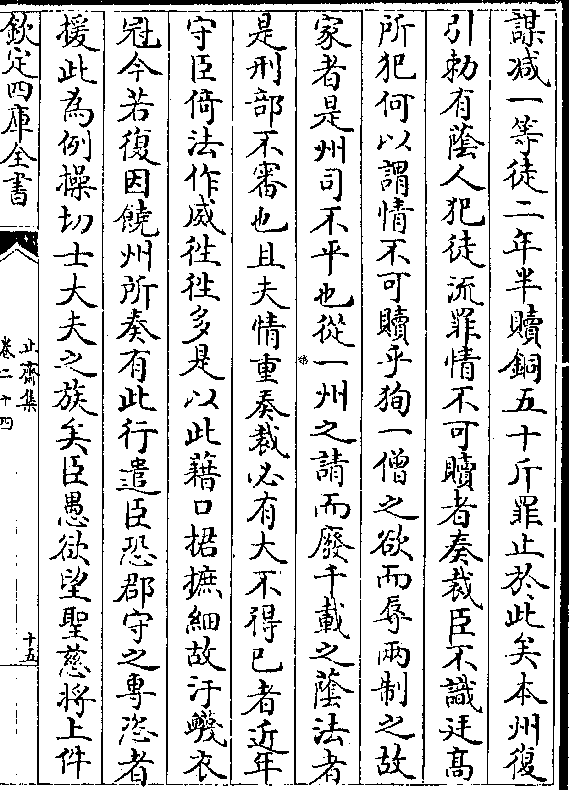 謀減一等徒二年半贖銅五十斤罪止於此矣本州復
引勅有蔭人犯徒流罪情不可贖者奏裁臣不識廷高
所犯何以謂情不可贖乎狥一僧之欲而辱兩制之故
家者是州司不平也從一州之請而廢千載之蔭法者
是刑部不審也且夫情重奏裁必有大不得已者近年
守臣倚法作威徃徃多是以此藉口捃摭細故汙衊衣
冠今若復因饒州所奏有此行遣臣恐郡守之專恣者
援此為例操切士大夫之族矣臣愚欲望聖慈將上件
欽定四庫全書
止齋集
卷二十四
十五